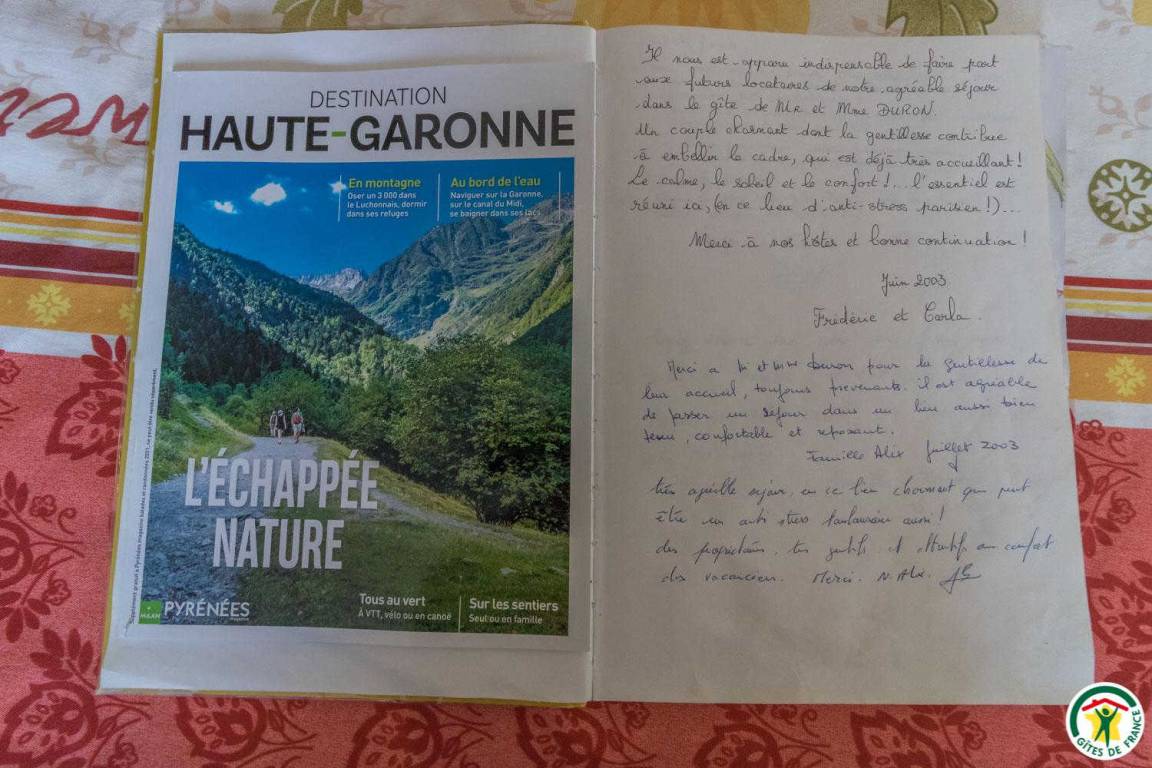 DESTINATION
HAUTE-GARONNE
En montagne
Oser un 3 000 dans
le Luchonnais, dormir
dans ses refuges
Au bord de l'eau
Naviguer sur la Garonne,
sur le canal du Midi,
se baigner dans ses lacs
L'ÉCHAPPÉE
NATURE
Tous au vert
À VTT, vélo ou en canoë
Sur les sentiers
Seul ou en famille
MILAN
PYRÉNÉES
magazine
Il nous est apparu indispensable de faire part
aux futurs locataires de notre agréable séjour
dans le gîte de Mr et Mme DURON.
Un couple charmant dont la gentillesse contribue
à embellir le cadre, qui est déjà très accueillant!
Le calme, le soleil et le confort!... l'essentiel est
réuni ici, (en ce lieu d'anti-stress parisien!)...
Merci à nos hôtes et bonne continuation!
Juin 2003
Frédéric et Carla.
Merci a M et Mme Duron pour la gentillesse de
leur accueil, toujours prevenants. il est agréable
de passer un séjour dans un lieu aussi bien
tenu, confortable et reposant.
Famille Alix Juillet 2003
très agréable séjour, en ce lieu charmant qui peut
être un anti stress toulousain aussi!
des propriétaires, très gentils et attentifs au confort
des vacanciers. Merci. N. Alix.
GÎTES DE FRANCE